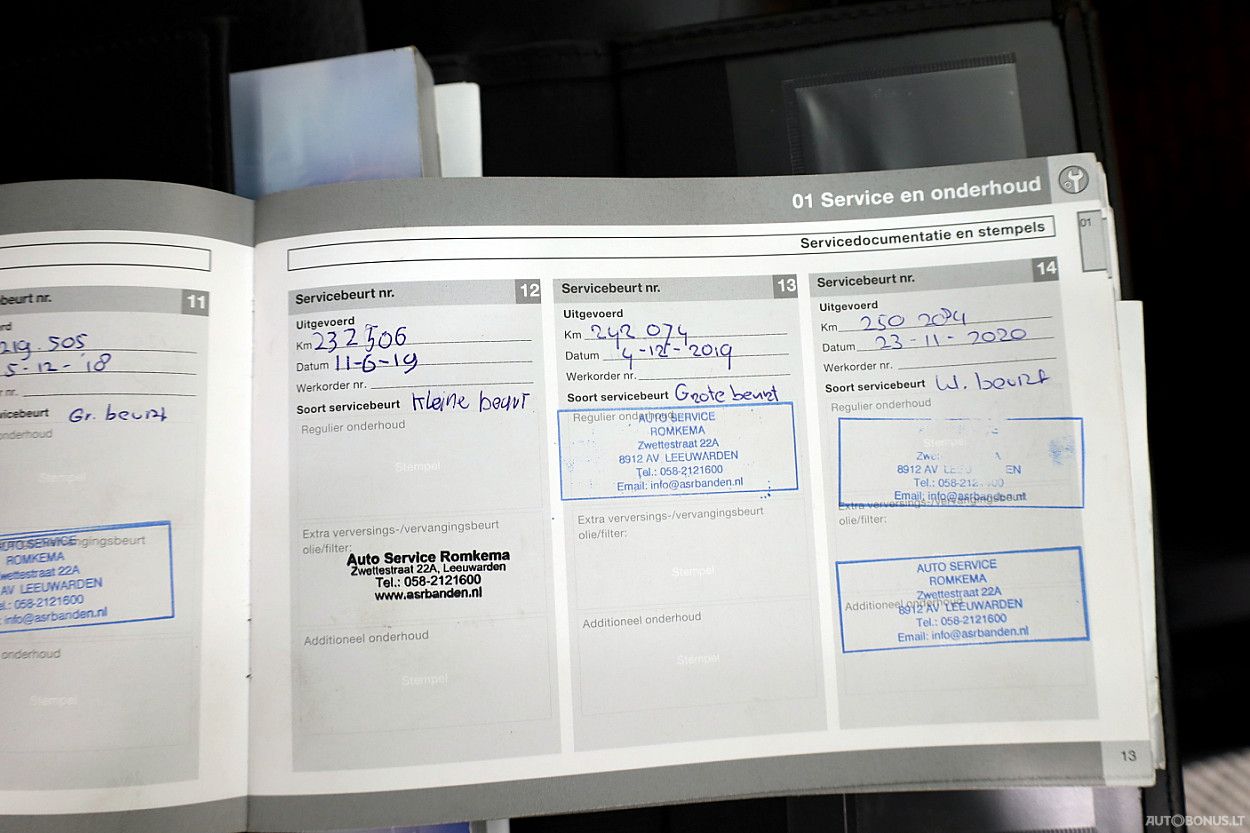 01 Service en onderhoud
01
Servicedocumentatie en stempels
beurt nr. 11
rd
219.505
5-12-'18
nr.
vicebeurt Gr. beurt
onderhoud
Stempel
vangingsbeurt
AUTO SERVICE
ROMKEMA
Zwettestraat 22A
AV LEEUWARDEN
el.: 058-2121600
info@asrbanden.nl
onderhoud
Stempel
Servicebeurt nr. 12
Uitgevoerd
Km 232 506
Datum 11-6-19
Werkorder nr.
Soort servicebeurt Kleine beurt
Regulier onderhoud
Stempel
Extra verversings-/vervangingsbeurt
olie/filter:
Auto Service Romkema
Zwettestraat 22A, Leeuwarden
Tel.: 058-2121600
www.asrbanden.nl
Additioneel onderhoud
Stempel
Servicebeurt nr. 13
Uitgevoerd
Km 242 074
Datum 4-12-2019
Werkorder nr.
Soort servicebeurt Grote beurt
Regulier onderhoud
AUTO SERVICE
ROMKEMA
Zwettestraat 22A
8912 AV LEEUWARDEN
Tel.: 058-2121600
Email: info@asrbanden.nl
Extra verversings-/vervangingsbeurt
olie/filter:
Stempel
Additioneel onderhoud
Stempel
Servicebeurt nr. 14
Uitgevoerd
Km 250 204
Datum 23-11-2020
Werkorder nr.
Soort servicebeurt beurt
Regulier onderhoud
Stempel
8912 AV
Email: info@asrbanden.nl
Extra verversings-/vervangingsbeurt
olie/filter:
AUTO SERVICE
ROMKEMA
Zwettestraat 22A
Additioneel onderhoud
8912 AV LEEUWARDEN
Tel.: 058-2121600
Email: info@asrbanden.nl
13
AUTOBONUS.LT